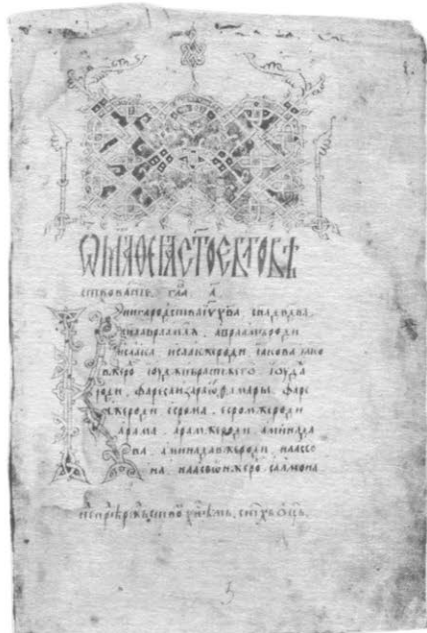 Ѿ маѳеіа ст҃ое бл҃говѣ
ствованїе. гла҃. а҃.
Книга родства іу҃ хв҃а, сн҃а дв҃два,
сн҃а авраамлѧ. авраамь роди
исаака. исаак же роди їакова. їако
в же ро. іюдѫ и братїѧ его. іюда
роди. фареса и зара ѿ ѳамары. фаре
с же роди есрома. есром же роди
арама. арам же роди. аминада
ва. аминадав же роди. наассо
на. наассѡн же ро. салмона
ст҃хь ѡц҃ь.